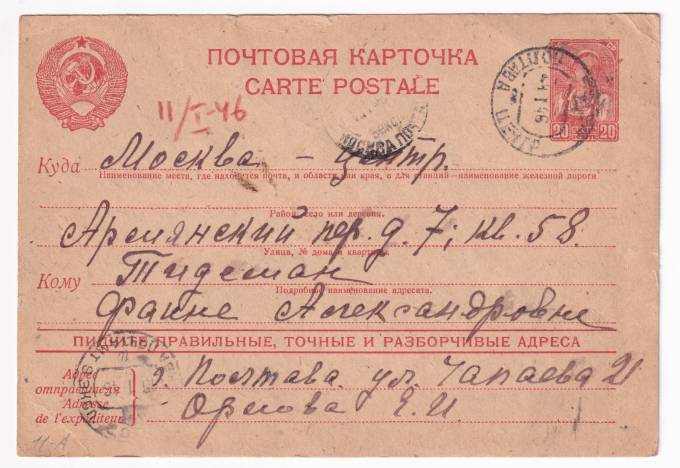 ПОЧТОВАЯ КАРТОЧКА
CARTE POSTALE
11/I-46
ПОЛТАВА ЦЕНТР
МОСКВА ПОЧТ
20 20
Куда Москва - центр.
Наименование места, где находится почта, и области или края, а для станций—наименование железной дороги
Район, село или деревня.
Армянский пер. д. 7; кв. 58.
Улица, № дома и квартиры.
Кому Тидеман
Подробное наименование адресата.
Фаине Александровне
ПИШИТЕ ПРАВИЛЬНЫЕ, ТОЧНЫЕ И РАЗБОРЧИВЫЕ АДРЕСА
Адрес отправителя г. Полтава ул. Чапаева 21
Adresse de l'expéditeur Орлова Е. И
11-А